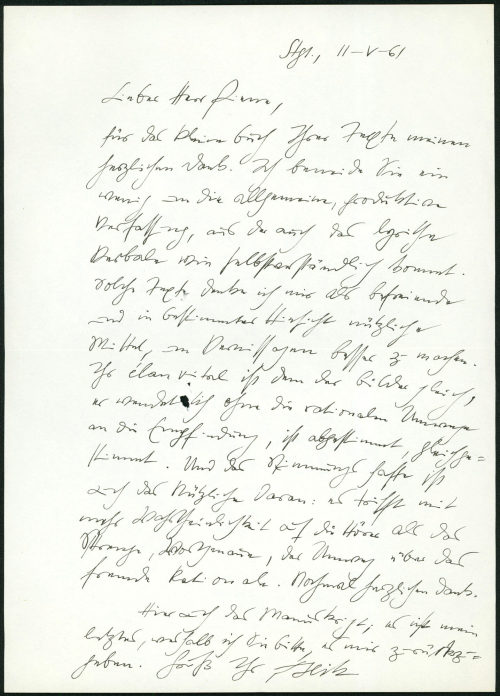 Stgt., 11-V-61
Lieber Herr Pierre,
für das kleine Buch Ihrer Texte meinen
herzlichen Dank. Ich beneide Sie ein
wenig um die allgemeine, produktive
Verfassung, aus der auch das lyrische
Verbale wie selbstverständlich kommt.
Solche Texte denke ich mir als befreiende
und in bestimmter Hinsicht nützliche
Mittel, um Vernissagen besser zu machen.
Ihr élan vital ist dem der Bilder gleich,
er wendet sich ohne die rationalen Umwege
an die Empfindung, ist abgestimmt, gleichge=
stimmt. Und das Stimmungshafte ist
auch das Nützliche daran: es trifft mit
mehr Wahrscheinlichkeit auf die Hörer als das
Strenge, Wortgenaue, der Umweg über das
fremde Rationale. Nochmal herzlichen Dank.
Hier auch das Manuskript; es ist mein
letztes, weshalb ich Sie bitte, es mir zurückzu=
geben. Gruß Ihr